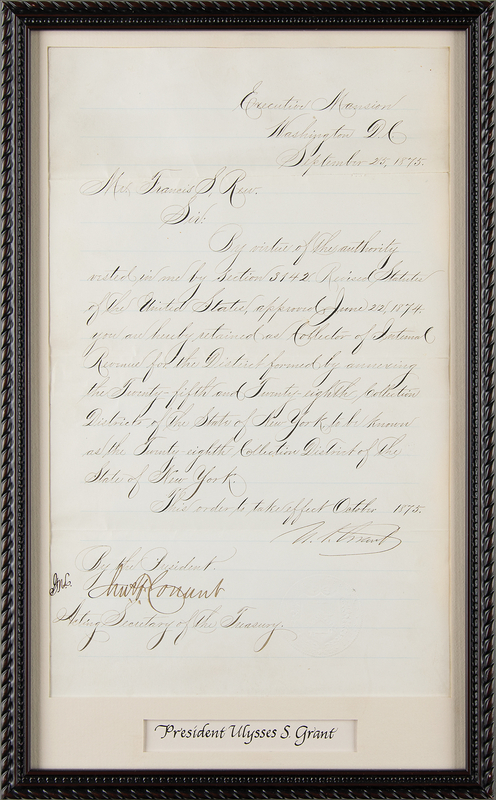 Executive Mansion
Washington D.C.
September 25, 1875.
Mr. Francis S. Rew.
Sir:
By virtue of the authority
vested in me by section 3142 Revised Statutes
of the United States, approved June 22, 1874
you are hereby retained as Collector of Internal
Revenue for the District formed by annexing
the Twenty-fifth and Twenty-eighth Collection
Districts of the State of New York, to be known
as the Twenty-eighth Collection District of the
State of New York.
This order to take effect October 1875.
U. S. Grant
By the President.
Chas F Conant
Acting Secretary of the Treasury.
President Ulysses S. Grant